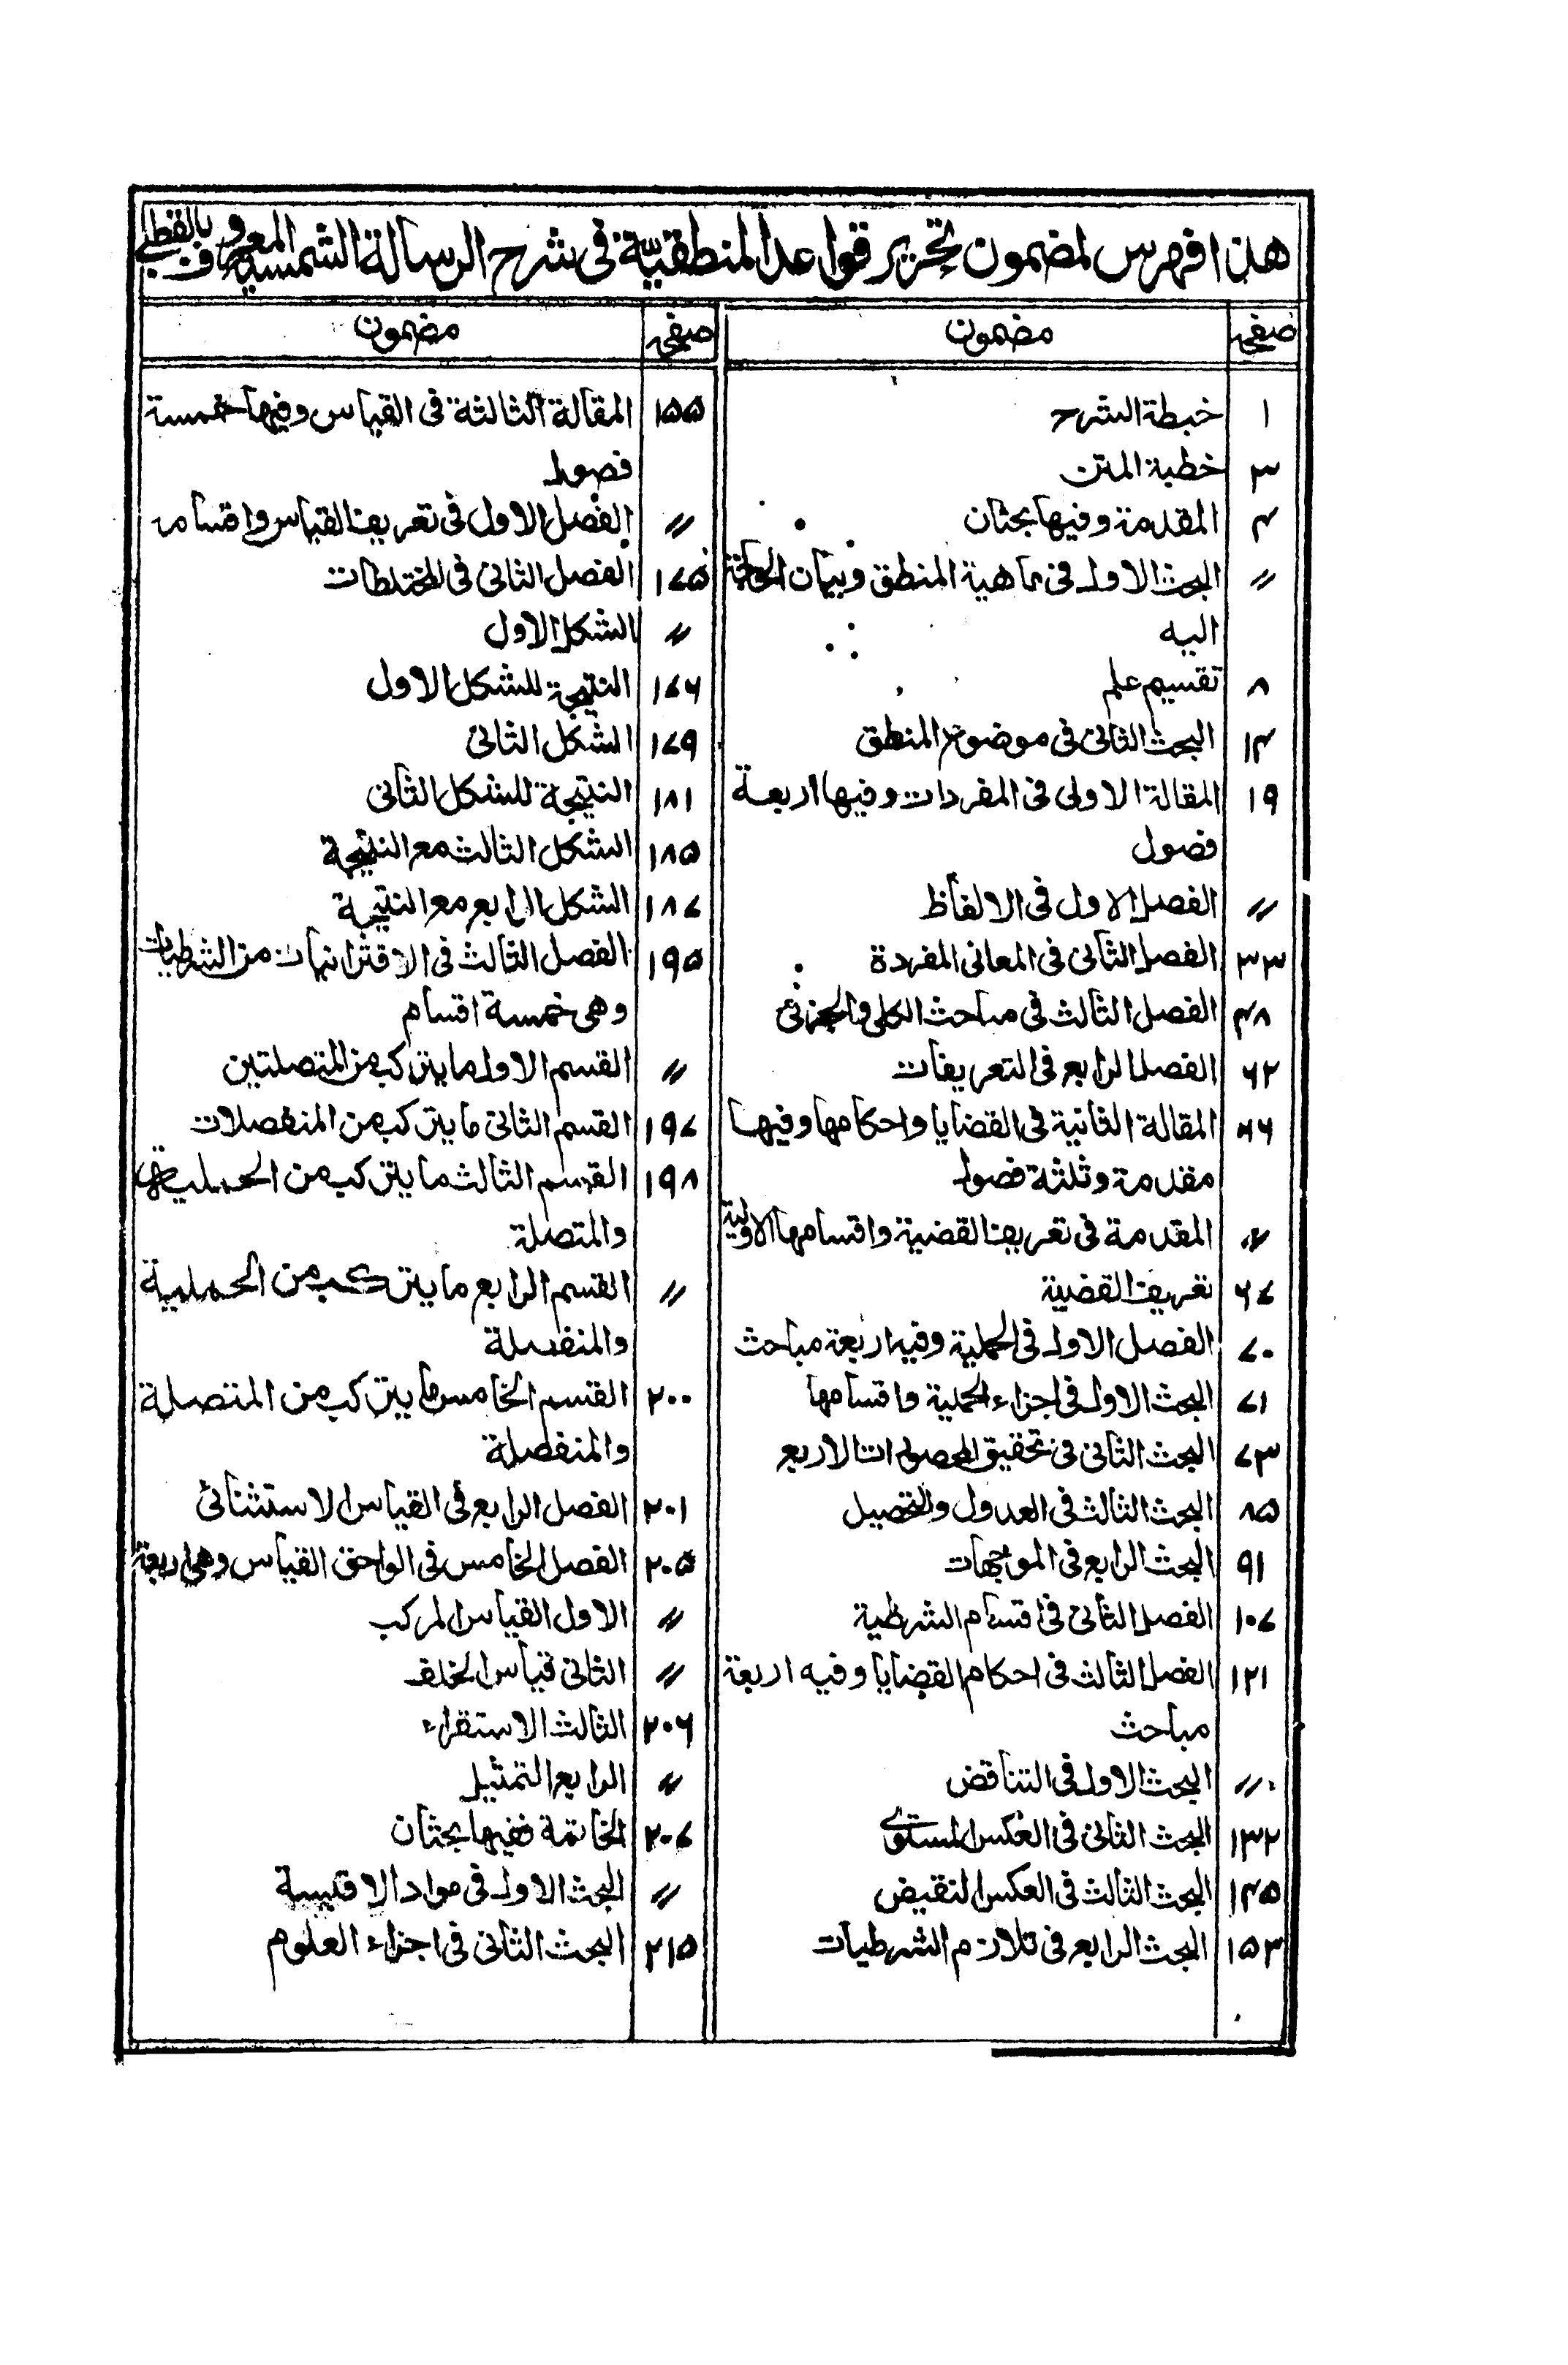 هذا فهرس لمضمون تحرير قواعد المنطقية فى شرح الرسالة الشمسية المعروف بالقطبى
صفحه مضمون
۱ خبطة الشرح
۳ خطبة المتن
۴ المقدمة وفيها بحثان
〃 البحث الاول فى ماهية المنطق وبيان الحاجة
اليه
۸ تقسيم علم
۱۴ البحث الثانى فى موضوع المنطق
۱۹ المقالة الاولى فى المفردات وفيها اربعة
فصول
〃 الفصل الاول فى الالفاظ
۳۳ الفصل الثانى فى المعانى المفردة
۴۸ الفصل الثالث فى مباحث الكلى والجزئى
۶۲ الفصل الرابع فى التعريفات
۶۶ المقالة الثانية فى القضايا واحكامها وفيها
مقدمة وثلثة فصول
〃 المقدمة فى تعريف القضية واقسامها الاولية
۶۷ تعريف القضية
۷۰ الفصل الاول فى الحملية وفيه اربعة مباحث
۷۱ البحث الاول فى اجزاء الحملية واقسامها
۷۳ البحث الثانى فى تحقيق المحصورات الاربع
۸۵ البحث الثالث فى العدول والتحصيل
۹۱ البحث الرابع فى الموجهات
۱۰۷ الفصل الثانى فى اقسام الشرطية
۱۲۱ الفصل الثالث فى احكام القضايا وفيه اربعة
مباحث
〃 البحث الاول فى التناقض
۱۳۲ البحث الثانى فى العكس المستوى
۱۴۵ البحث الثالث فى العكس النقيض
۱۵۳ البحث الرابع فى تلازم الشرطيات
صفحه مضمون
۱۵۵ المقالة الثالثة فى القياس وفيها خمسة
فصول
〃 الفصل الاول فى تعريف القياس واقسامه
۱۷۵ الفصل الثانى فى المختلطات
〃 الشكل الاول
۱۷۶ النتيجة للشكل الاول
۱۷۹ الشكل الثانى
۱۸۱ النتيجة للشكل الثانى
۱۸۵ الشكل الثالث مع النتيجة
۱۸۷ الشكل الرابع مع النتيجة
۱۹۵ الفصل الثالث فى الاقترانيات من الشرطيات
وهى خمسة اقسام
〃 القسم الاول ما يتركب من المتصلتين
۱۹۷ القسم الثانى ما يتركب من المنفصلات
۱۹۸ القسم الثالث ما يتركب من الحملية
والمتصلة
〃 القسم الرابع ما يتركب من الحملية
والمنفصلة
۲۰۰ القسم الخامس ما يتركب من المتصلة
والمنفصلة
۲۰۱ الفصل الرابع فى القياس الاستثنائى
۲۰۵ الفصل الخامس فى الواحق القياس وهى اربعة
〃 الاول القياس المركب
〃 الثانى قياس الخلف
۲۰۶ الثالث الاستقراء
〃 الرابع التمثيل
۲۰۷ الخاتمة ففيها بحثان
〃 البحث الاول فى مواد الاقيسة
۲۱۵ البحث الثانى فى اجزاء العلوم